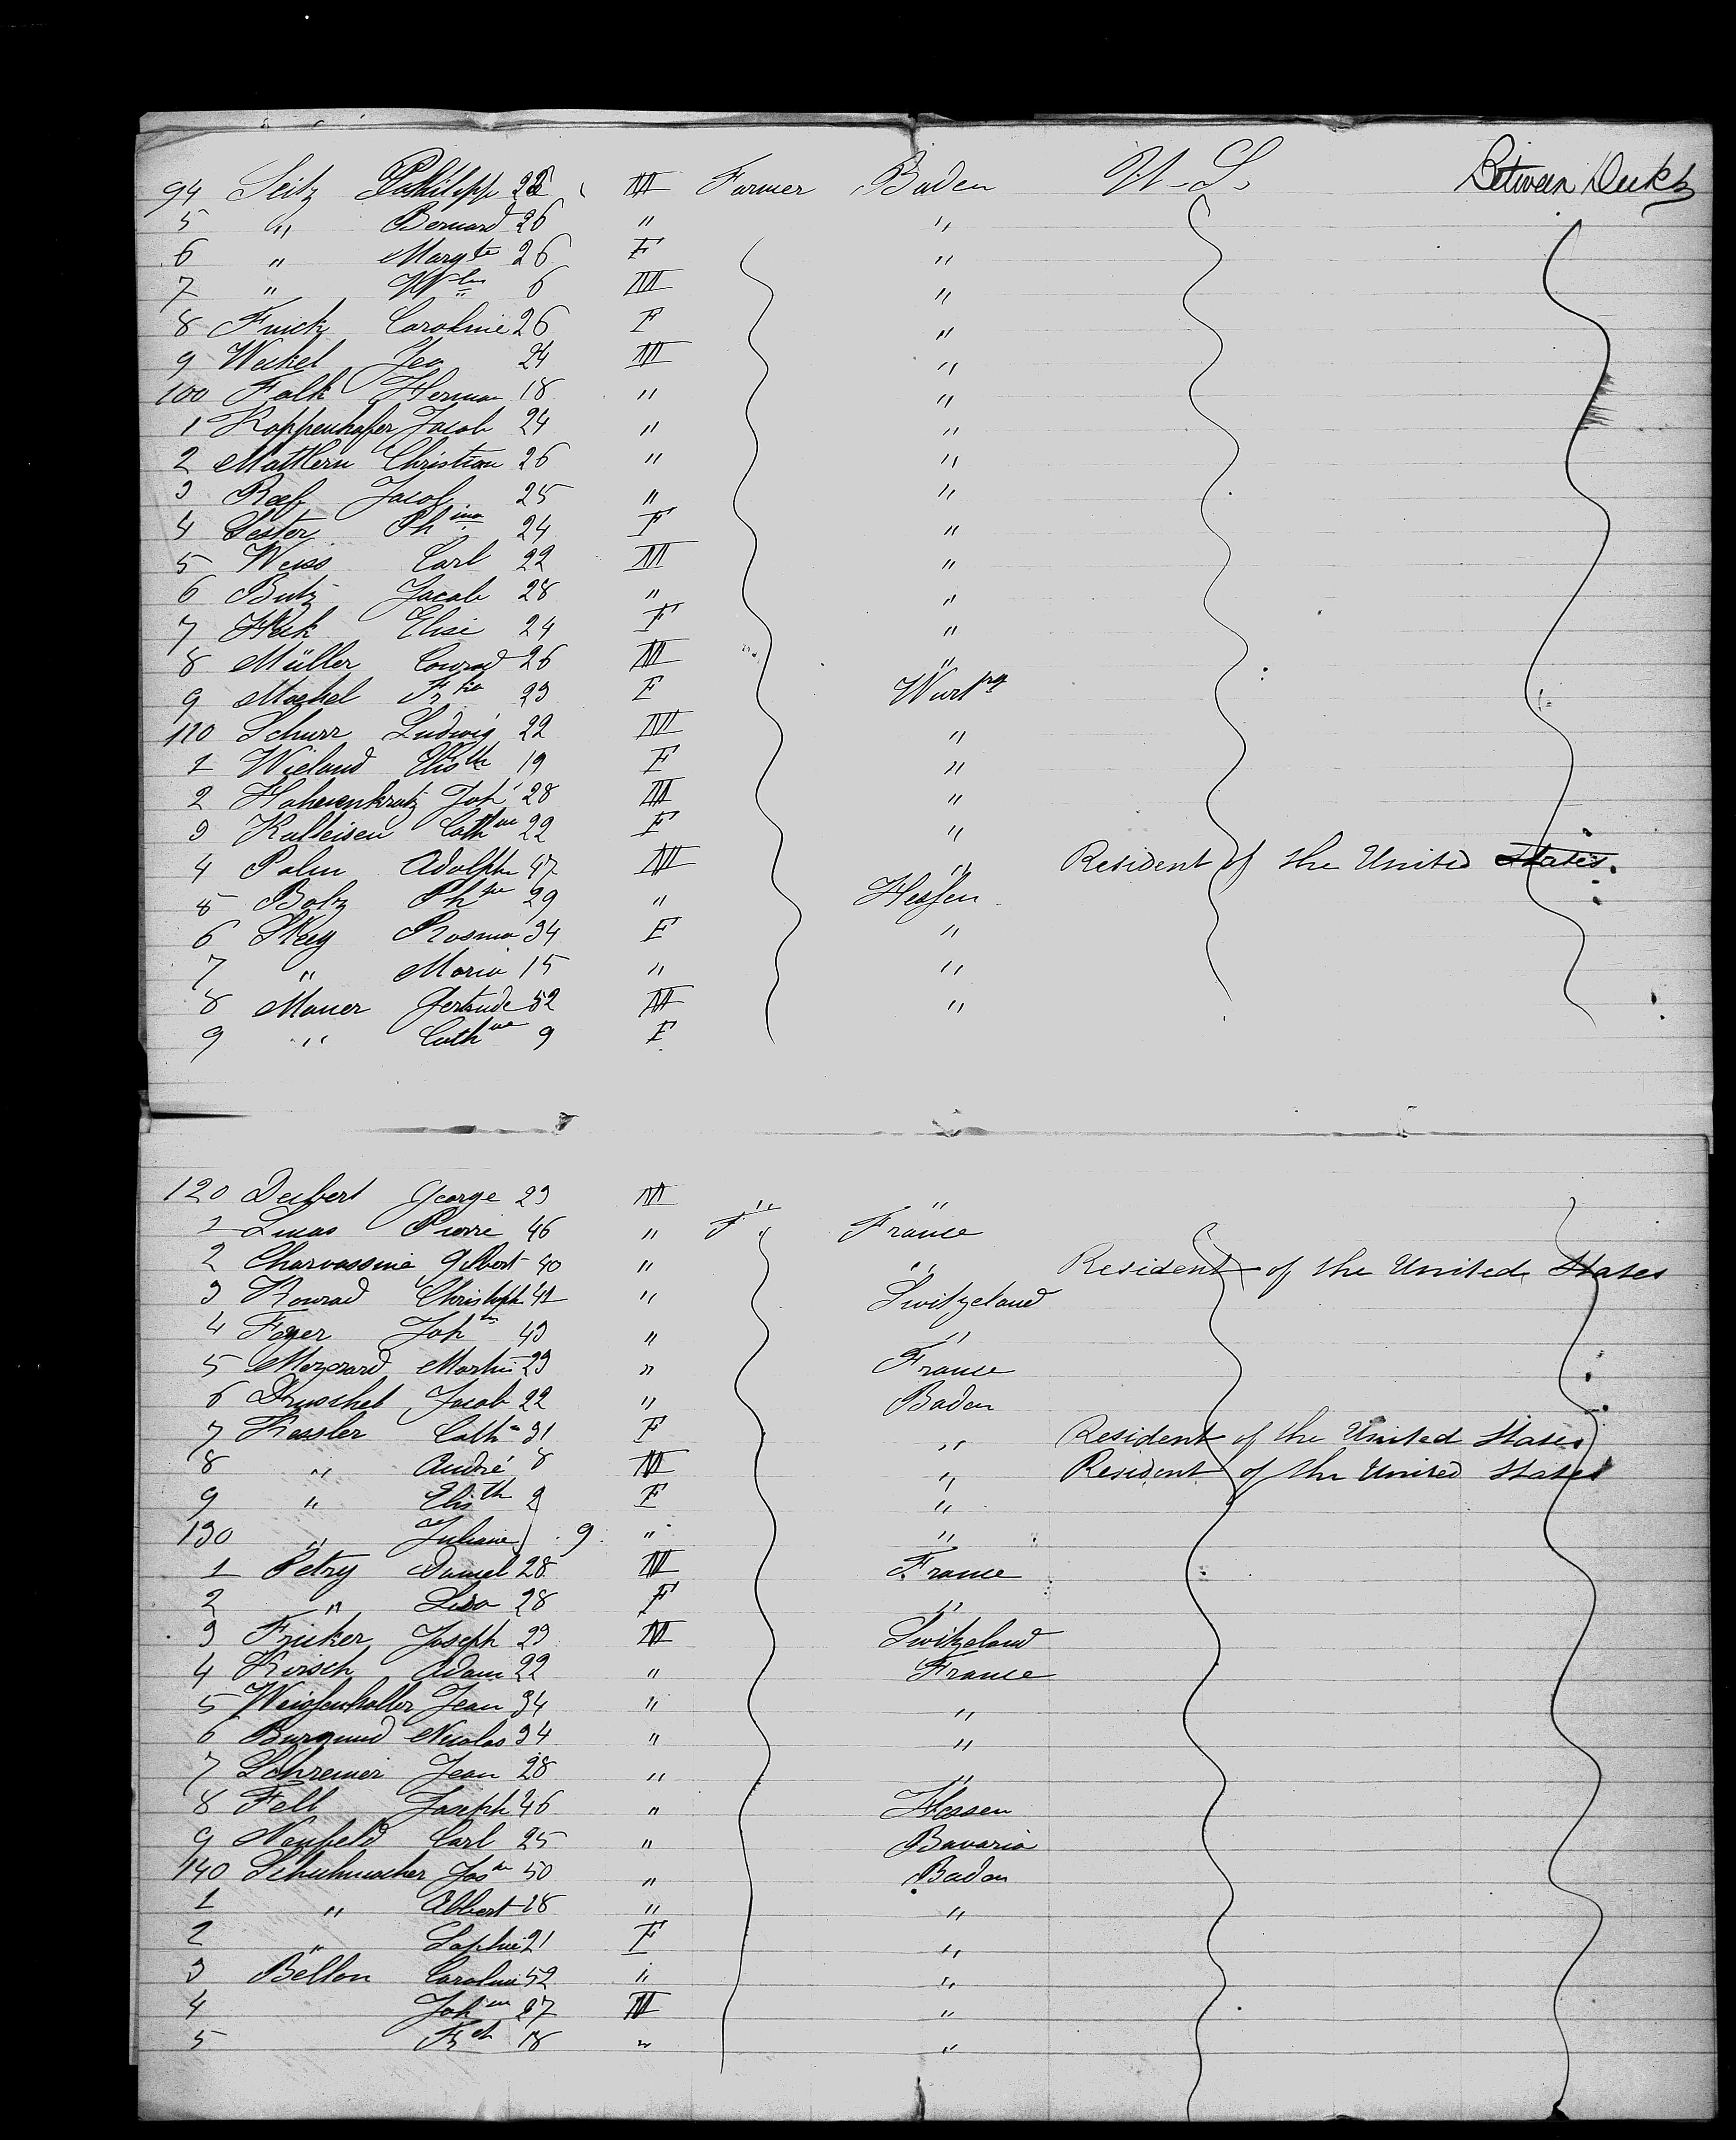 94 Seitz Philipp 28 M Farmer Baden U-S. Between Decks
5 " Bernard 26 " "
6 " Margte 26 F "
7 " Whm 6 M "
8 Frick Caroline 26 F "
9 Weikel Geo 24 M "
100 Falk Herman 18 " "
1 Koppenhafer Jacob 24 " "
2 Mattlern Christian 26 " "
3 Reef Jacob 25 " "
4 Sester 24 F "
5 Weiss Carl 22 M "
6 Butz Jacob 28 " "
7 Heck Elise 24 F "
8 Müller Conrad 26 M "
9 Maekel 23 F Wurtbrg
110 Schurr Ludwig 22 M "
1 Wieland Elisth 19 F "
2 Hahnenkratz Joh 28 M "
3 Kalteisen Cathne 22 F "
4 Palm Adolph 47 M " Resident of the United States.
5 Bolz 29 " Hessen
6 Rosina 34 F "
7 " Maria 15 " "
8 Mauer Gertrude 52 M "
9 " Cathne 9 F
120 Deubert George 23 M " "
1 Lucas Pierre 46 " F " France
2 Charvassine Gilbert 40 " " Resident of the United States
3 Konrad Christoph 41 " Switzeland
4 Fager Johs 43 " "
5 Martin 23 " France
6 Druschel Jacob 22 " Baden
7 Kessler Cath 31 F " Resident of the United States
8 " André 8 M " Resident of the United States
9 " Elisth 2 F "
130 " Juliane 9 " "
1 Petry Daniel 28 M France
2 " Lisa 28 F "
3 Fricker Joseph 23 M Switzeland
4 Kirsch Adam 22 " France
5 Weissenhaller Jean 34 " "
6 Burgund Nicolas 34 " "
7 Schreiner Jean 28 " "
8 Fell Joseph 46 " Hessen
9 Neufeld Carl 25 " Bavaria
140 Schuhmacher 50 " Baden
1 " Albert 18 " "
2 " Sophie 21 F "
3 Bellon Caroline 52 " "
4 27 M "
5 18 " "